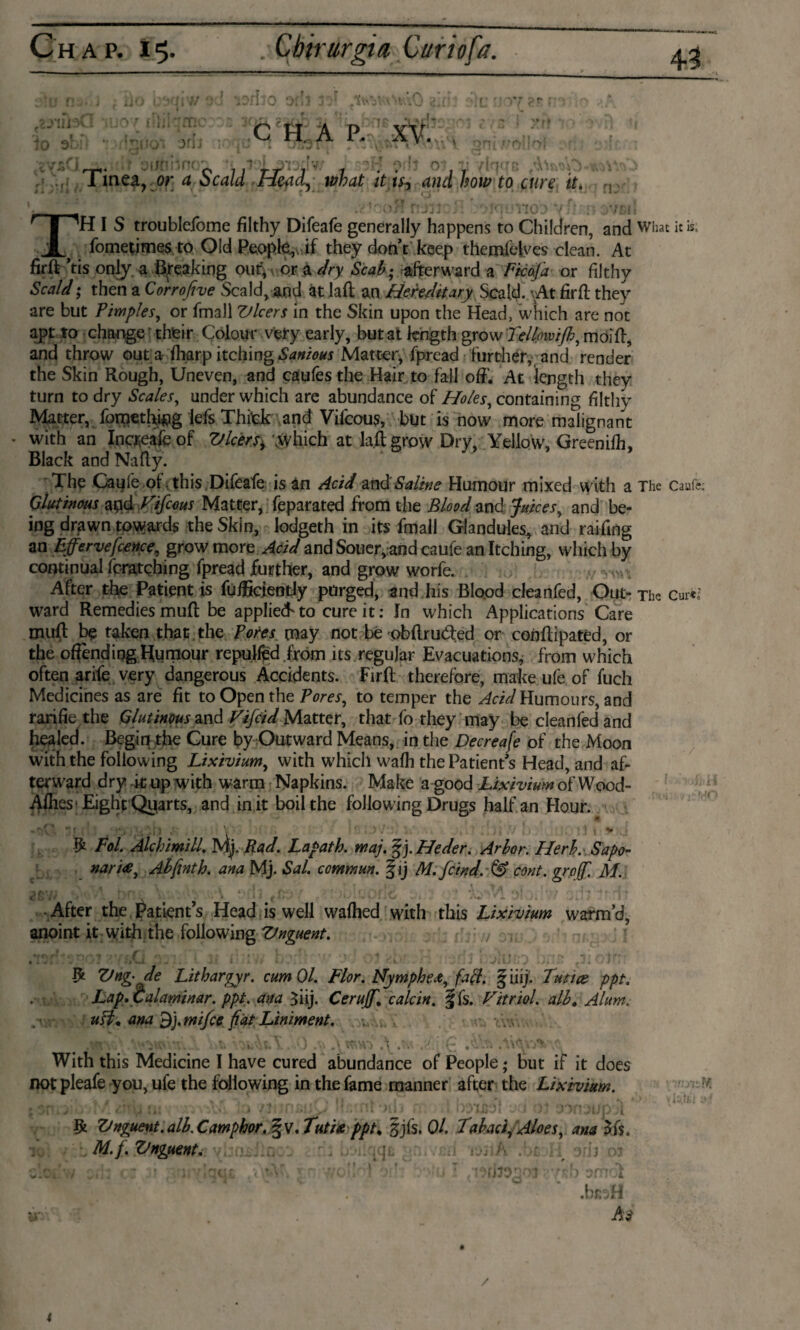 CHAP. 15. Chirurgia Curiosa. 43
CHAP. XV.
Tinea, or a Scald Head, what it is, and how to cure it.
THIS troubleſome filthy Diſeaſe generally happens to Children, and What it is.
ſometimes to Old People, if they don't keep themſelves clean. At
firſt 'tis only a Breaking out, or a dry Scab; afterward a Ficoſa or filthy
Scald; then a Corroſive Scald, and at laſt an Hereditary Scald. At firſt they
are but Pimples, or ſmall Ulcers in the Skin upon the Head, which are not
apt to change their Colour very early, but at length grow Yellowiſh, moiſt,
and throw out a ſharp itching Sanious Matter, ſpread further, and render
the Skin Rough, Uneven, and cauſes the Hair to fall off. At length they
turn to dry Scales, under which are abundance of Holes, containing filthy
Matter, ſomething leſs Thick and Viſcous, but is now more malignant
with an Increaſe of Ulcers, which at laſt grow Dry, Yellow, Greeniſh,
Black and Naſty.
The Cauſe of this Diſeaſe is an Acid and Saline Humour mixed with a The Cauſe.
Glutinous and Viſcous Matter, ſeparated from the Blood and Juices, and be-
ing drawn towards the Skin, lodgeth in its ſmall Glandules, and raiſing
an Efferveſcence, grow more Acid and Souer, and cauſe an Itching, which by
continual ſcratching ſpread further, and grow worſe.
After the Patient is ſufficiently purged, and his Blood cleanſed, Out- The Cure.
ward Remedies muſt be applied to cure it: In which Applications Care
muſt be taken that the Pores may not be obſtructed or conſtipated, or
the offending Humour repulſed from its regular Evacuations, from which
often ariſe very dangerous Accidents. Firſt therefore, make uſe of ſuch
Medicines as are fit to Open the Pores, to temper the Acid Humours, and
rarifie the Glutinous and Viſcid Matter, that ſo they may be cleanſed and
healed. Begin the Cure by Outward Means, in the Decreaſe of the Moon
with the following Lixivium, with which waſh the Patient's Head, and af-
terward dry it up with warm Napkins. Make a good Lixivium of Wood-
Aſhes Eight Quarts, and in it boil the following Drugs half an Hour.
℞ Fol. Alchimill. Mj. Rad. Lapath. maj. ℥j. Heder. Arbor. Herb. Sapo-
nariæ, Abſinth. ana Mj. Sal. commun. ℥ij M. ſcind. & cont. groſſ. M.
After the Patient's Head is well waſhed with this Lixivium warm'd,
anoint it with the following Unguent.
℞ Ung. de Lithargyr. cum Ol. Flor. Nympheæ, fact. ℥iiij. Tutiæ ppt.
Lap. Calaminar. ppt. ana ʒiij. Ceruſſ. calcin. ℥ſs. Vitriol. alb. Alum.
uſt. ana ℈j. miſce fiat Liniment.
With this Medicine I have cured abundance of People; but if it does
not pleaſe you, uſe the following in the ſame manner after the Lixivium.
℞ Unguent. alb. Camphor. ℥v. Tutiæ ppt. ℥jſs. Ol. Tabaci, Aloes, ana ʒſs.
M. f. Unguent.
As